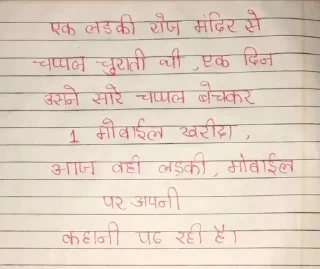 एक लडकी रोज मंदिर से
चप्पल चुराती थी , एक दिन
उसने सारे चप्पल बेचकर
1 मोबाईल खरीदा ,
आज वही लडकी, मोबाईल
पर अपनी
कहानी पढ रही है।